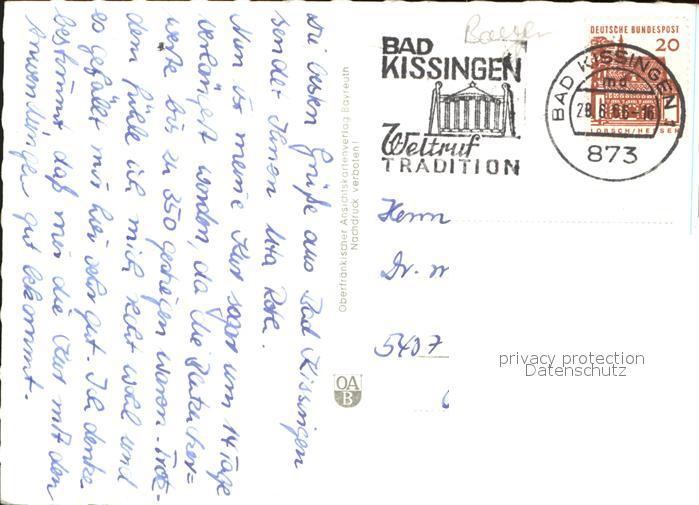 Bayern
BAD
KISSINGEN
Weltruf
TRADITION
DEUTSCHE BUNDESPOST
20
LORSCH/HESSEN
BAD KISSINGEN 1
29.6.66-16
873
Herrn
Dr. M
5407
privacy protection
Datenschutz
Oberfränkischer Ansichtskartenverlag Bayreuth
Nachdruck verboten!
OA
B
Die besten Grüße aus Bad Kissingen
sendet Ihnen Rote.
Nun ist meine Kur sogar um 14 Tage
verlängert worden, da die Blutzucker=
werte bis zu 350 gestiegen waren. Trotz-
dem fühle ich mich recht wohl und
es gefällt mir hier sehr gut. Ich denke
bestimmt daß mir die Kur mit den
Anwendungen gut bekommt.